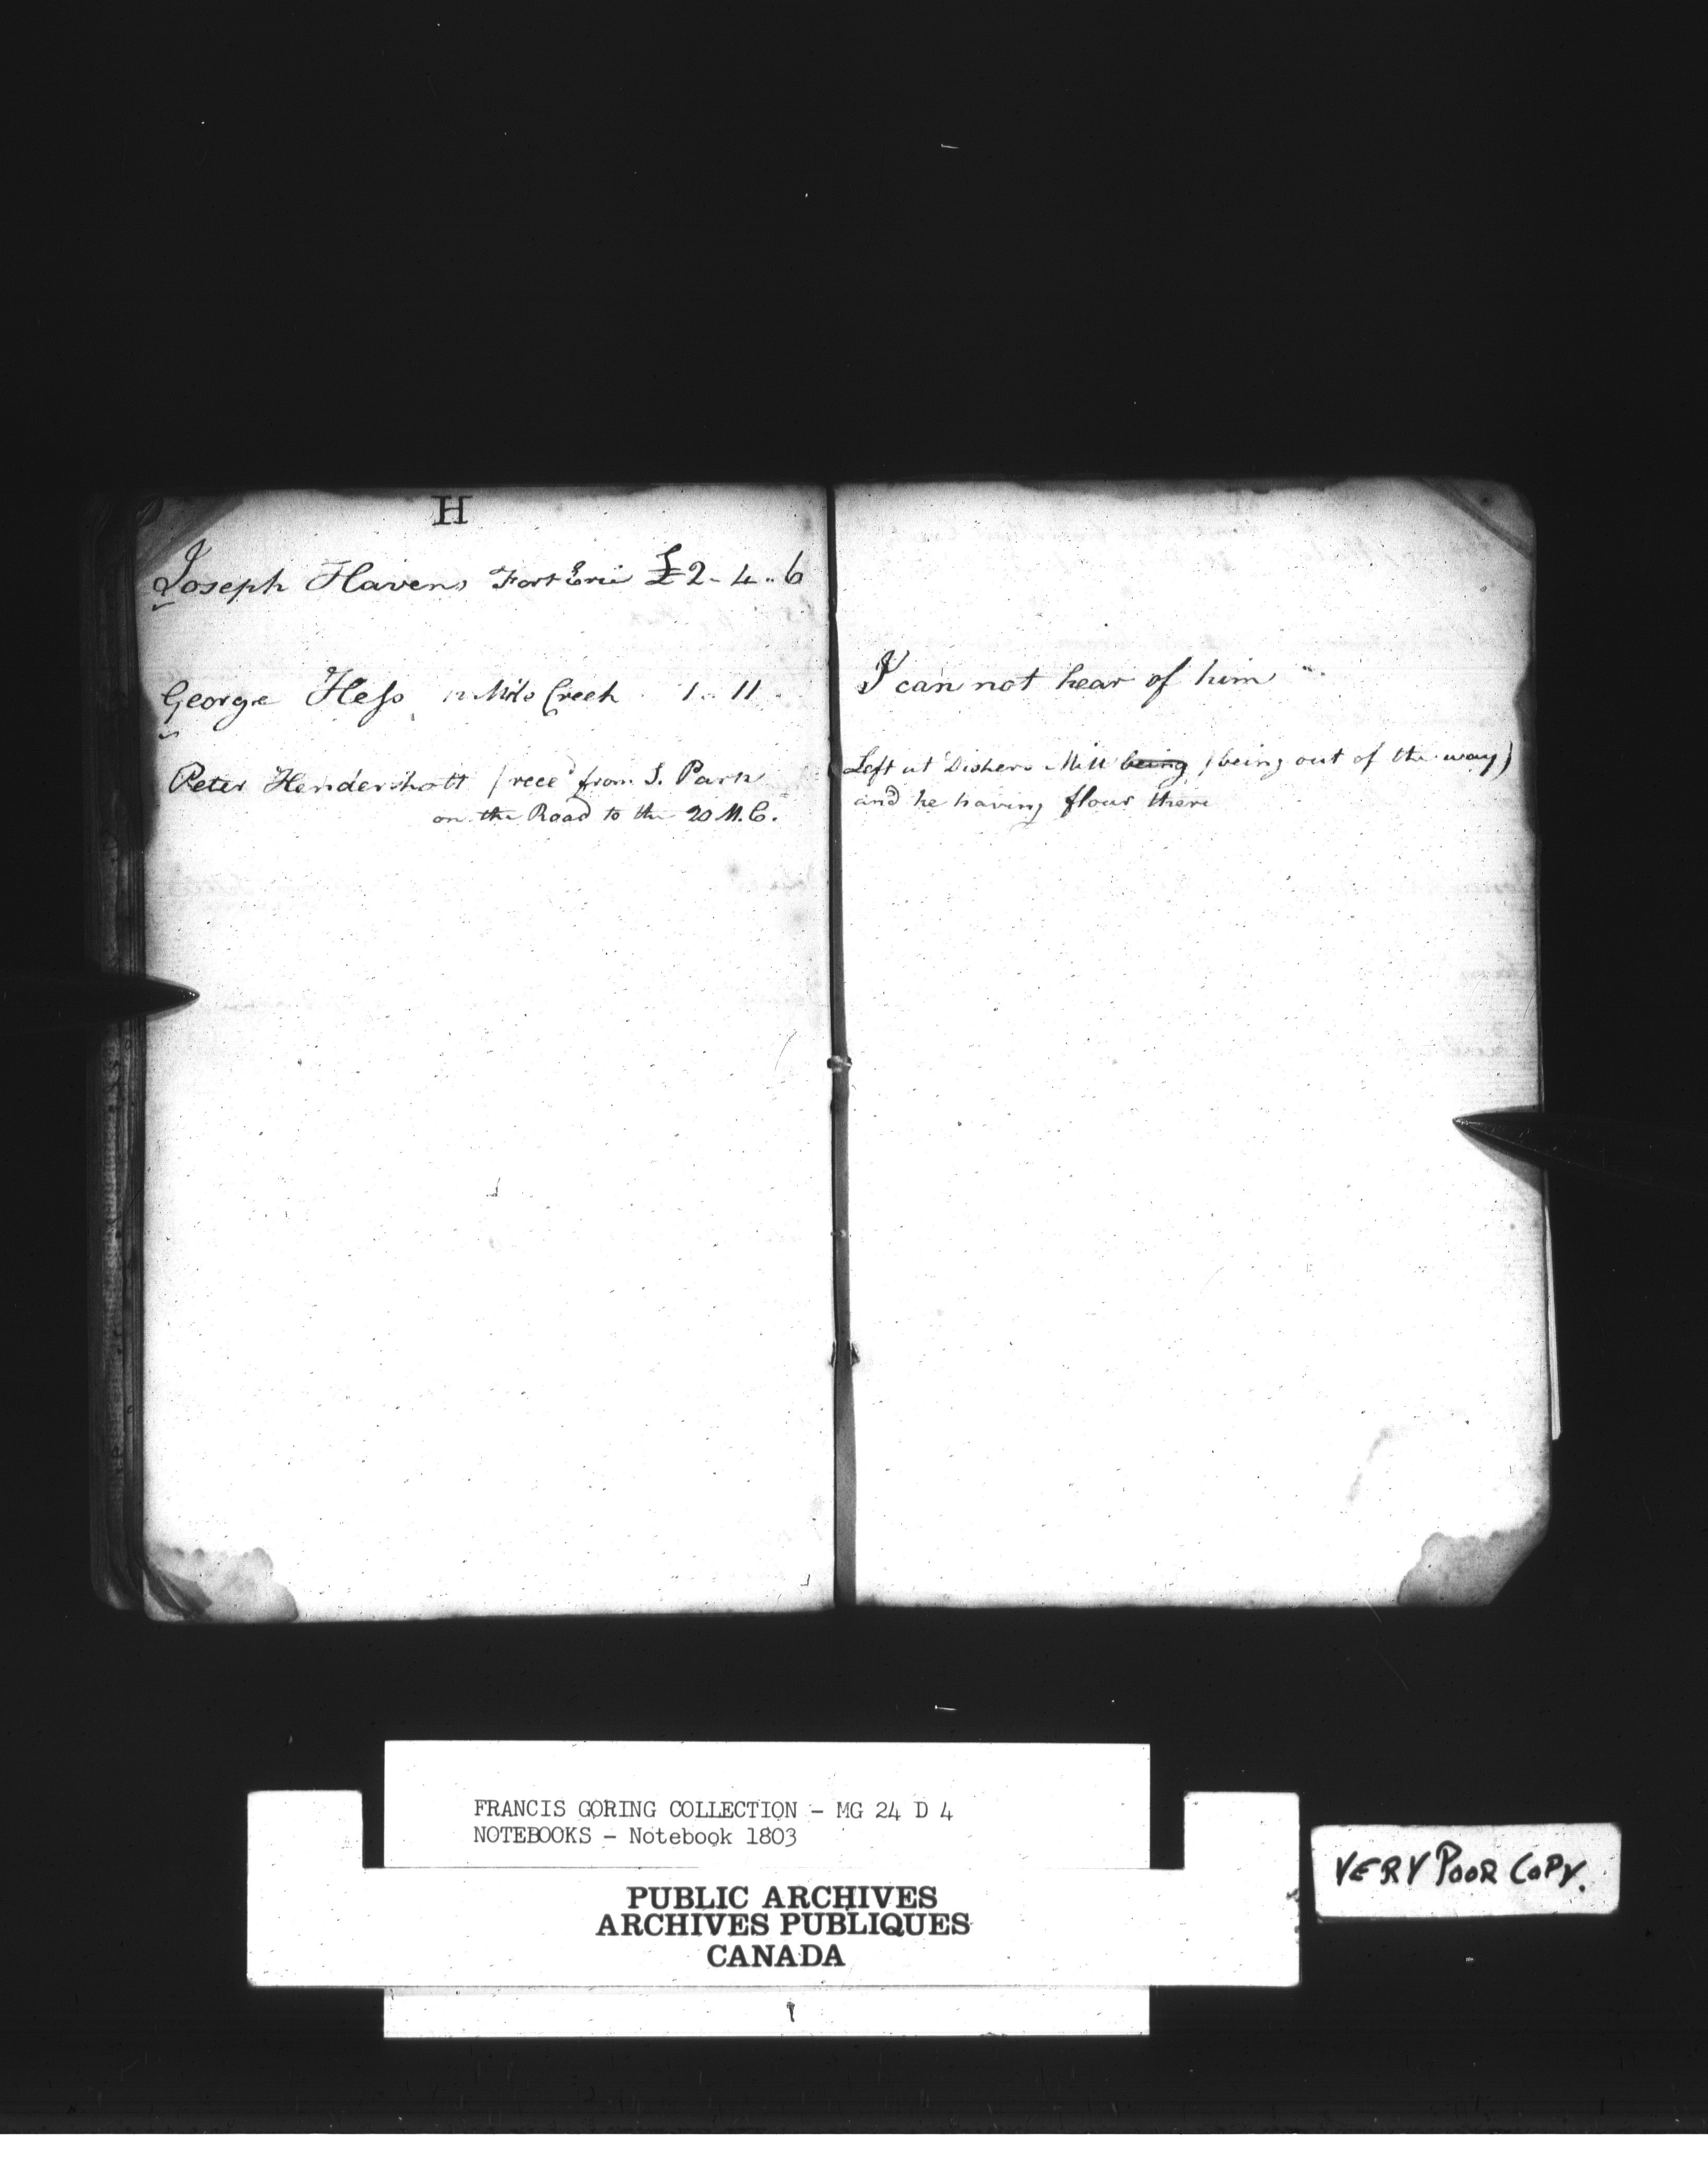 H
Joseph Havens Fort Erie £2-4-6
George Hess 12 Mile Creek 1-11
Peter Hendershott / recd from S. Park
on the Road to the 20 M.C.
I can not hear of him
Left at Dishers Mill being (being out of the way)
and he having flour there
FRANCIS GORING COLLECTION - MG 24 D 4
NOTEBOOKS - Notebook 1803
PUBLIC ARCHIVES
ARCHIVES PUBLIQUES
CANADA
VERY POOR COPY.